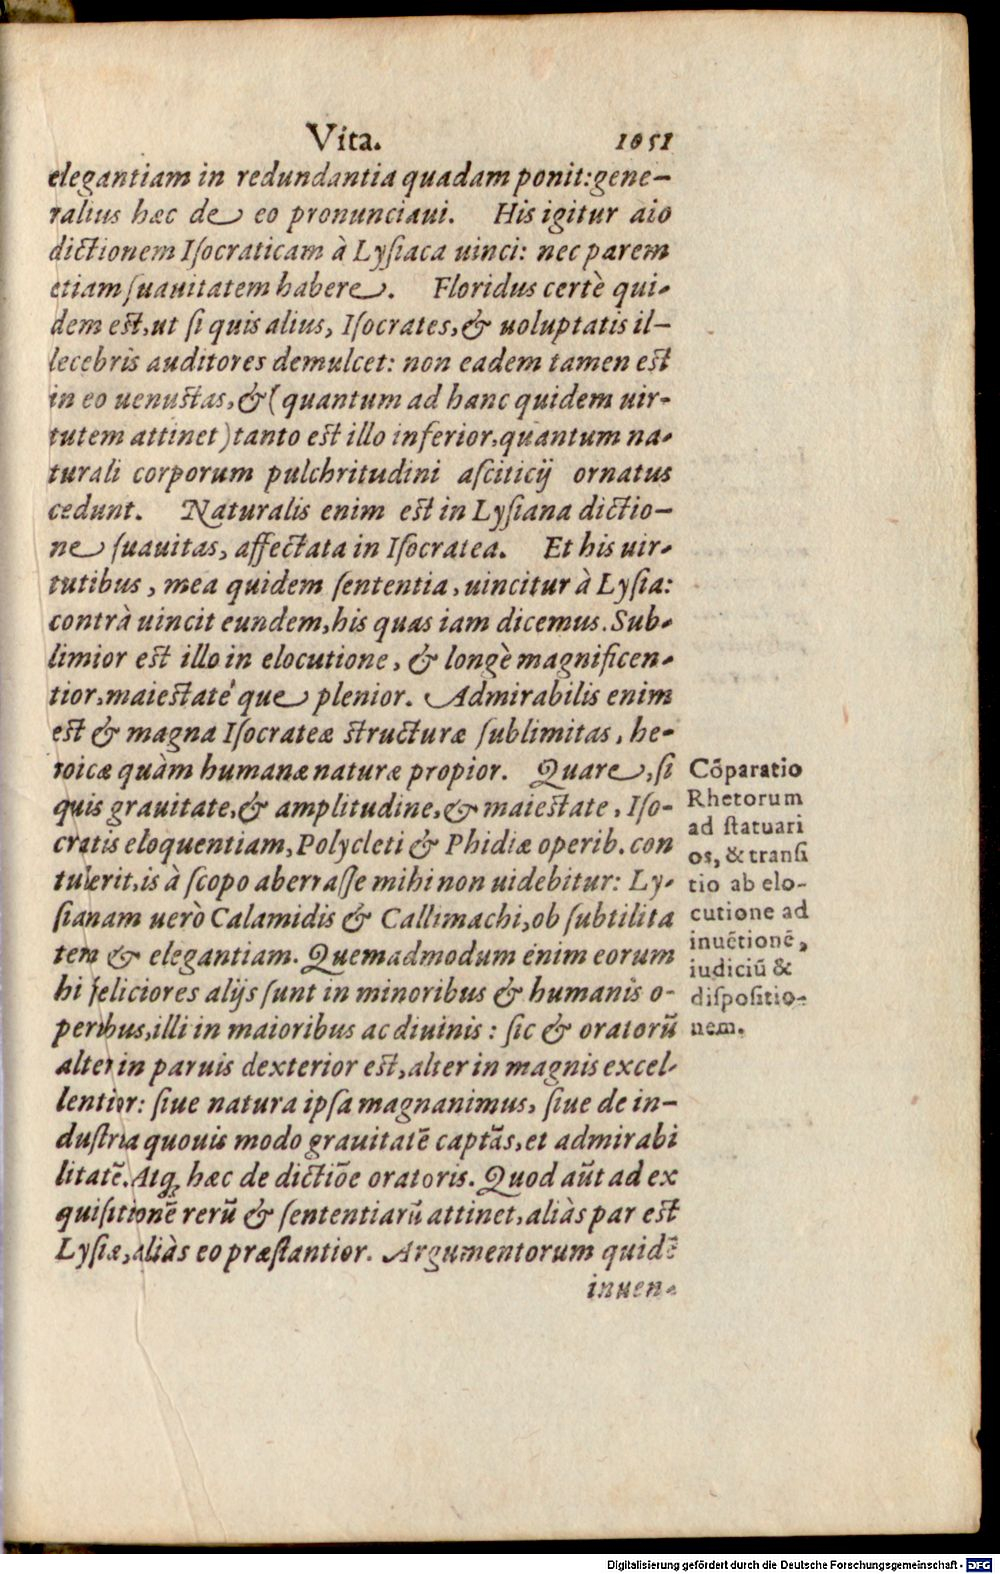 Vita. 1051
elegantiam in redundantia quadam ponit: gene-
ralius hæc de eo pronunciaui. His igitur aio
dictionem Isocraticam à Lysiaca uinci: nec parem
etiam suauitatem habere. Floridus certè qui-
dem est, ut si quis alius, Isocrates, & uoluptatis il-
lecebris auditores demulcet: non eadem tamen est
in eo uenustas, & (quantum ad hanc quidem uir-
tutem attinet) tanto est illo inferior, quantum na-
turali corporum pulchritudini asciticij ornatus
cedunt. Naturalis enim est in Lysiana dictio-
ne suauitas, affectata in Isocratea. Et his uir-
tutibus, mea quidem sententia, uincitur à Lysia:
contrà uincit eundem, his quas iam dicemus. Sub-
limior est illo in elocutione, & longè magnificen-
tior, maiestate'que plenior. Admirabilis enim
est & magna Isocrateæ structuræ sublimitas, he-
roicæ quàm humanæ naturæ propior. Quare, si
quis grauitate, & amplitudine, & maiestate, Iso-
cratis eloquentiam, Polycleti & Phidiæ operib. con
tulerit, is à scopo aberrasse mihi non uidebitur: Ly-
sianam uerò Calamidis & Callimachi, ob subtilita
tem & elegantiam. Quemadmodum enim eorum
hi feliciores alijs sunt in minoribus & humanis o-
peribus, illi in maioribus ac diuinis: sic & oratorū
alter in paruis dexterior est, alter in magnis excel-
lentior: siue natura ipsa magnanimus, siue de in-
dustria quouis modo grauitatē captās, et admirabi
litatē. Atq; hæc de dictiōe oratoris. Quod aūt ad ex
quisitionē rerū & sententiarū attinet, aliàs par est
Lysiæ, aliàs eo præstantior. Argumentorum quidē
inuen-
Cōparatio
Rhetorum
ad statuari
os, & transi
tio ab elo-
cutione ad
inuētionē,
iudiciū &
dispositio-
nem.
Digitalisierung gefördert durch die Deutsche Forschungsgemeinschaft - DFG